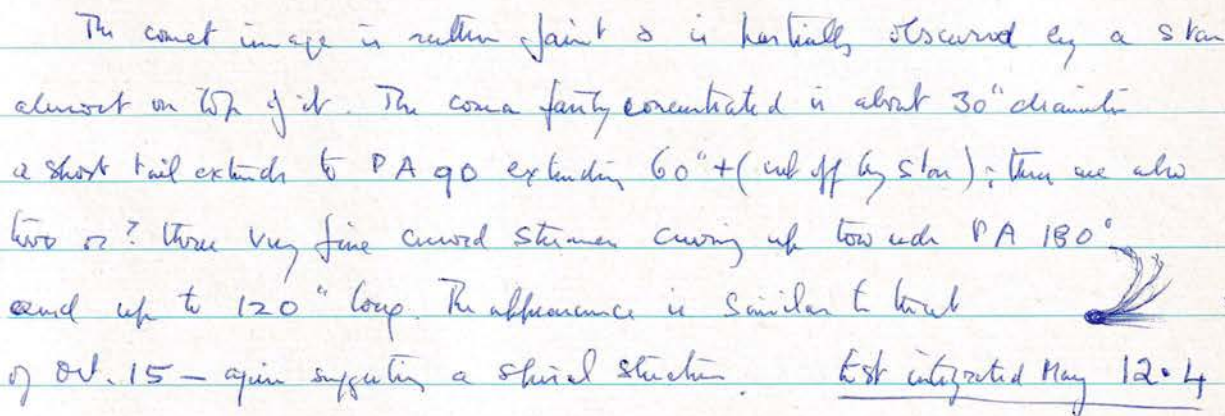 The comet image is rather faint & is partially obscured by a star
almost on top of it. The coma fairly concentrated is about 30" diameter
a short tail extends to PA 90 extending 60"+ (cut off by star); there are also
two or? three very fine curved streamers curving up towards PA 180°
and up to 120" long. The appearance is similar to that
of Oct. 15 — again suggesting a spiral structure. Est integrated Mag 12.4